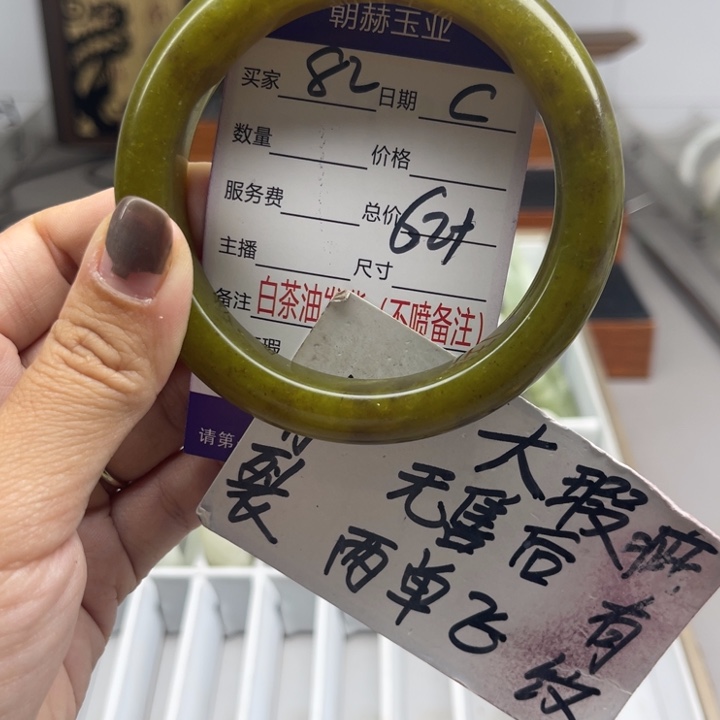 朝赫玉业
买家 82 日期 C
数量 价格
服务费 总价
主播 尺寸
备注 白茶油 (不喷备注)
瑕
请第
大瑕疵 有纹
裂
无售后
两单飞